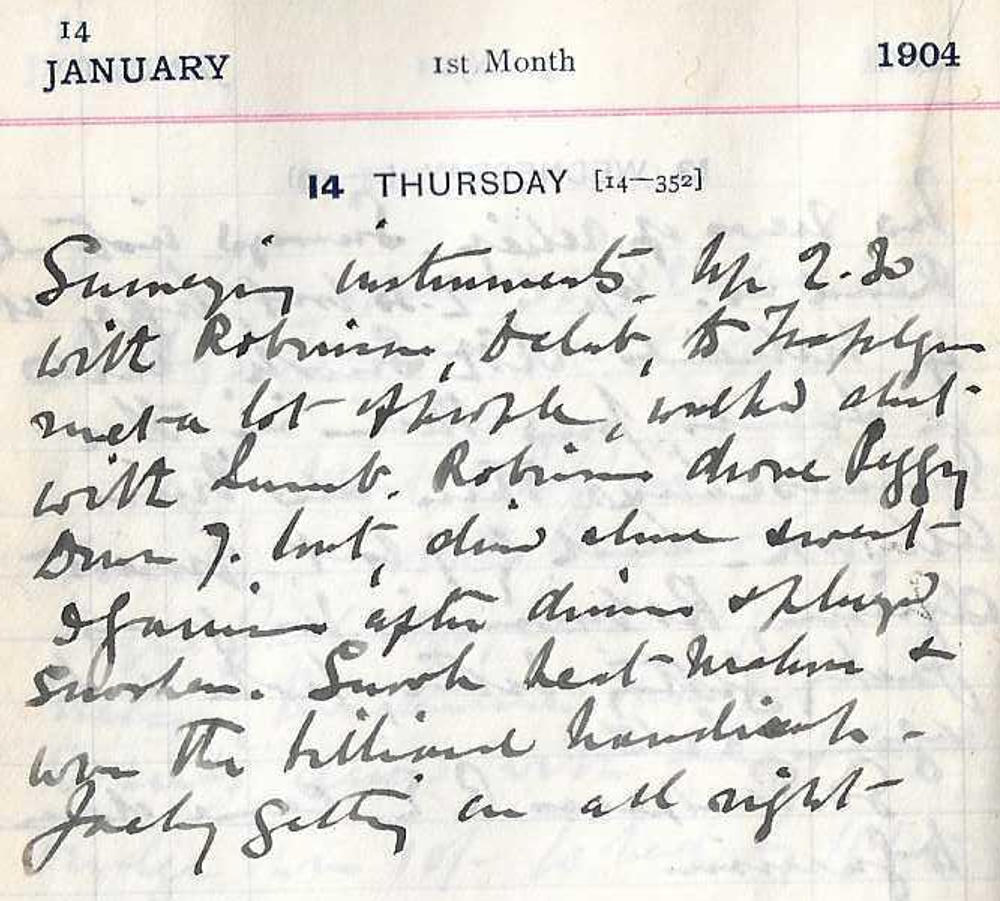 14
JANUARY 1st Month 1904
14 THURSDAY [14—352]
Surveying instruments. Up 2.30
with Robinson, to club, to
met a lot of people, walked about
with Lumb. Robinson drove Peggy
Down 7. hut, dined alone & went
after dinner & played
Snooker. Snook beat &
won the billiard handicap -
Jacky getting on all right